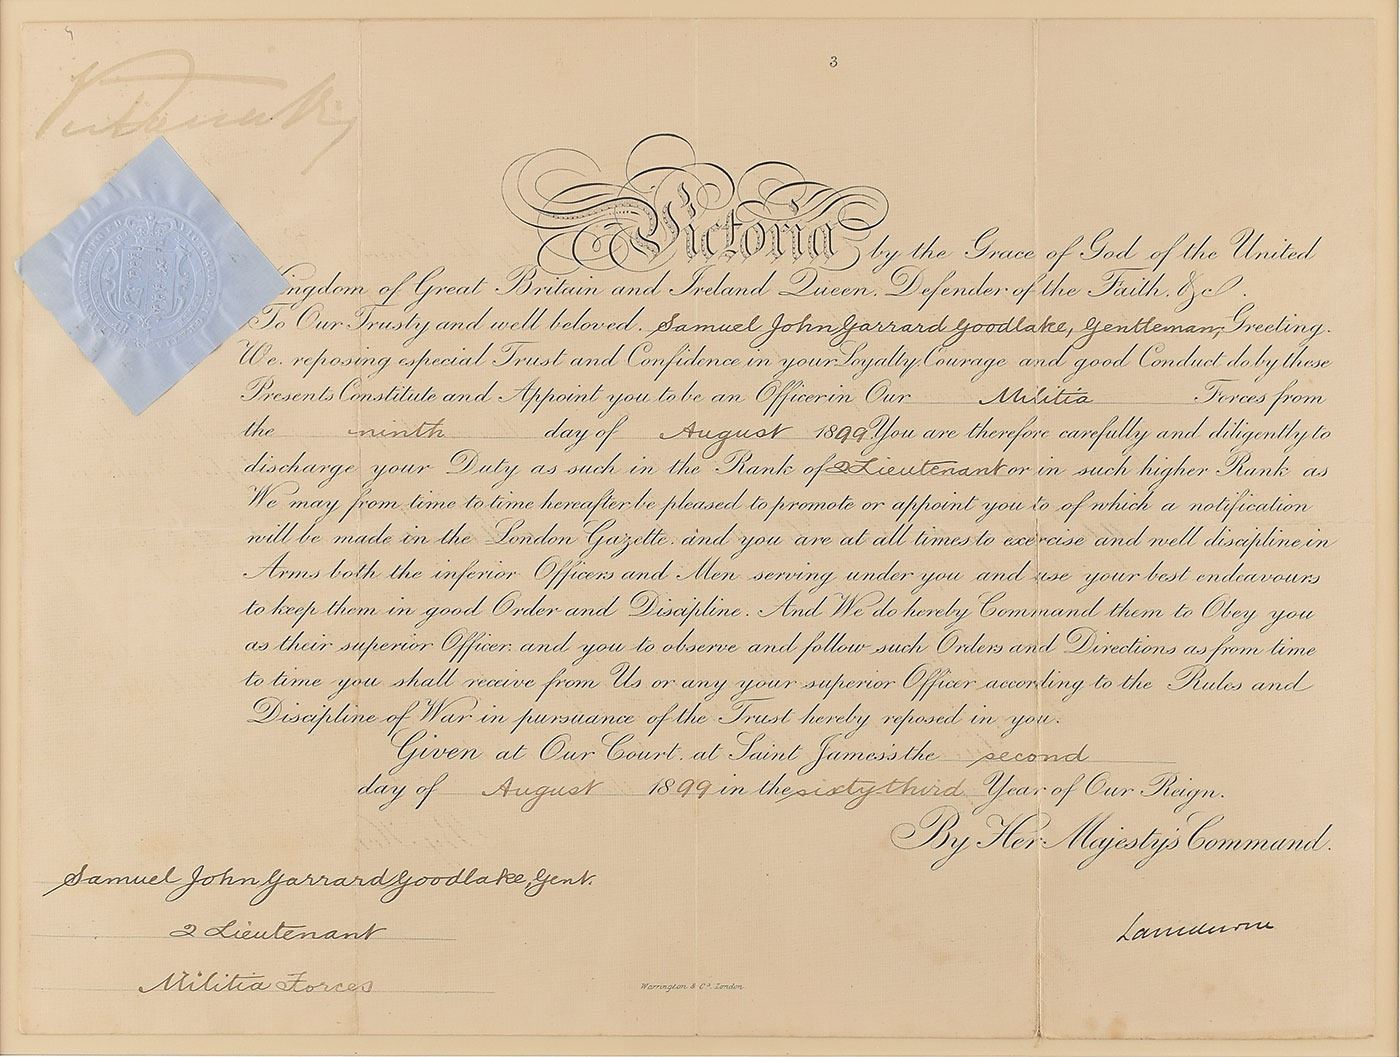 3
Victoria by the Grace of God of the United
Kingdom of Great Britain and Ireland Queen. Defender of the Faith. &c.
To Our Trusty and well beloved. Samuel John Garrard Goodlake, Gentleman, Greeting.
We. reposing especial Trust and Confidence in your Loyalty. Courage and good Conduct do by these
Presents Constitute and Appoint you to be an Officer in Our Militia Forces from
the ninth day of August 1899 You are therefore carefully and diligently to
discharge your Duty as such in the Rank of 2 Lieutenant or in such higher Rank as
We may from time to time hereafter be pleased to promote or appoint you to of which a notification
will be made in the London Gazette. and you are at all times to exercise and well discipline in
Arms both the inferior Officers and Men serving under you and use your best endeavours
to keep them in good Order and Discipline. And We do hereby Command them to Obey you
as their superior Officer. and you to observe and follow such Orders and Directions as from time
to time you shall receive from Us or any your superior Officer according to the Rules and
Discipline of War in pursuance of the Trust hereby reposed in you.
Given at Our Court. at Saint James's the second
day of August 1899 in the sixty third Year of Our Reign.
By Her Majesty's Command.
Samuel John Garrard Goodlake, Gent.
2 Lieutenant
Militia Forces
Lansdowne
Warrington & Co. London